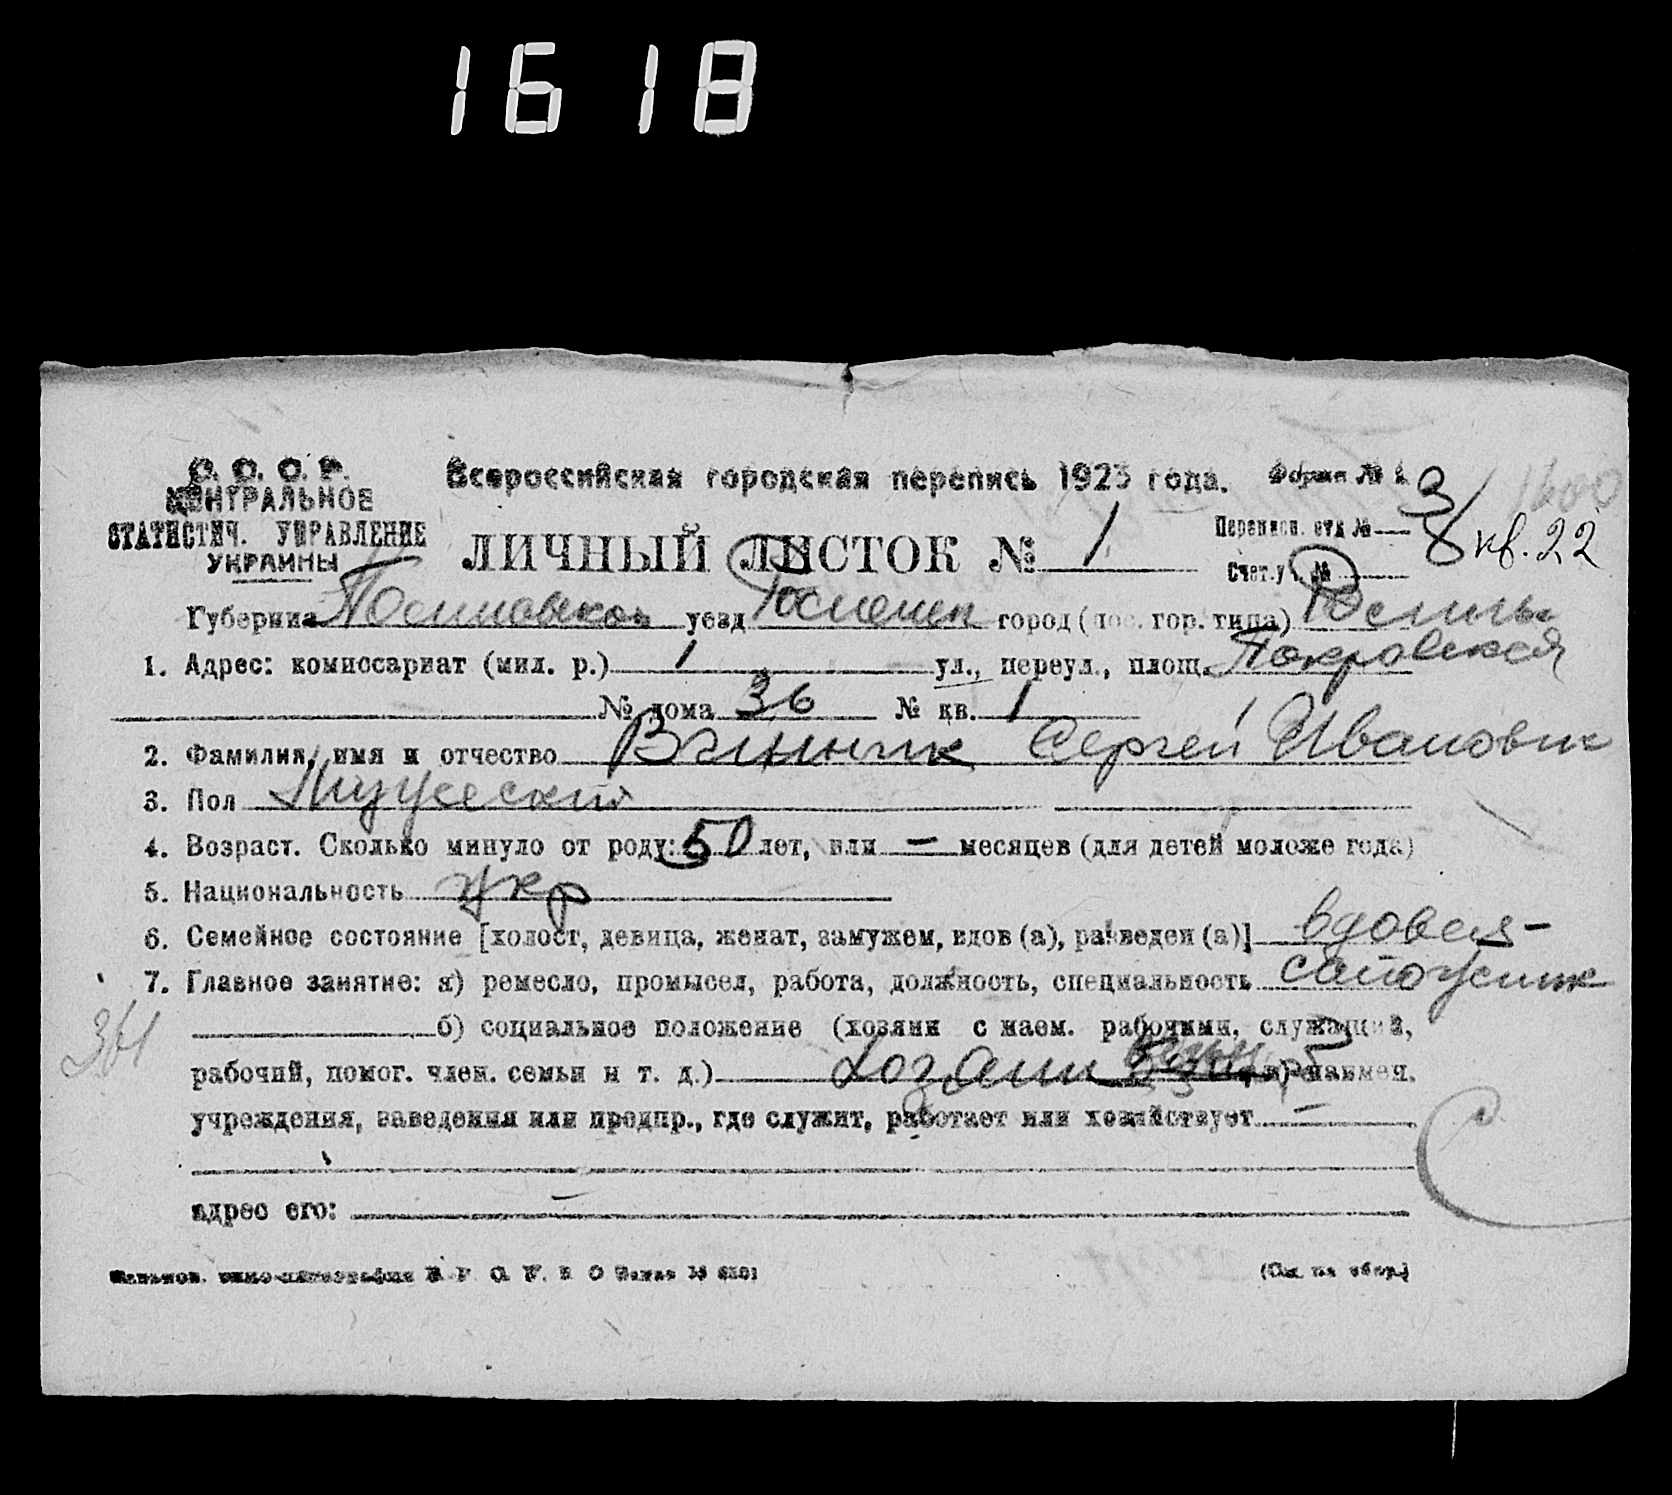 1618
С. С. С. Р. Всероссийская городская перепись 1923 года. Форма № 1.
ЦЕНТРАЛЬНОЕ
СТАТИСТИЧ. УПРАВЛЕНИЕ
УКРАИНЫ
3 1600
ЛИЧНЫЙ ЛИСТОК № 1 Переписн. отд №
8 кв. 22
Счет. уч. №
Губерния уезд город (пос. гор. типа)
1. Адрес: комиссариат (мил. р.) 1 ул., переул., площ. Покровская
№ дома 36 № кв. 1
2. Фамилия, имя и отчество Сергей Иванович
3. Пол Мужеский
4. Возраст. Сколько минуло от роду: 50 лет, или — месяцев (для детей моложе года)
5. Национальность укр
6. Семейное состояние [холост, девица, женат, замужем, вдов (а), разведен (а)] вдовец
7. Главное занятие: а) ремесло, промысел, работа, должность, специальность сапожник
361
б) социальное положение (хозяин с наем. рабочими, служащий,
рабочий, помог. член. семьи и т. д.) хозяин в) наимен.
учреждения, заведения или предпр., где служит, работает или хозяйствует —
адрес его: —
(См. на обор.)